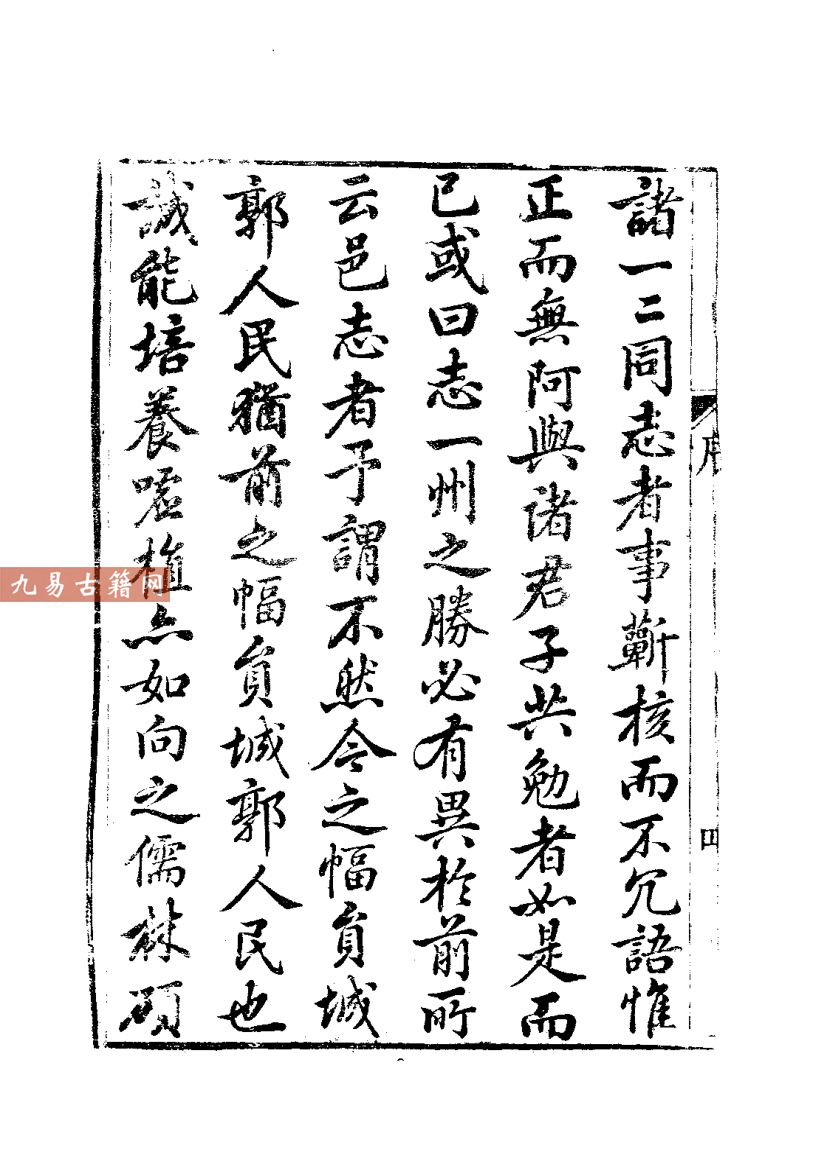 諸一二同志者事蘄核而不冗語惟
正而無阿與諸君子共勉者如是而
已或曰志一州之勝必有異於前所
云邑志者予謂不然今之幅員城
郭人民猶前之幅員城郭人民也
誠能培養噓植亦如向之儒林碩
序
四
九易古籍网